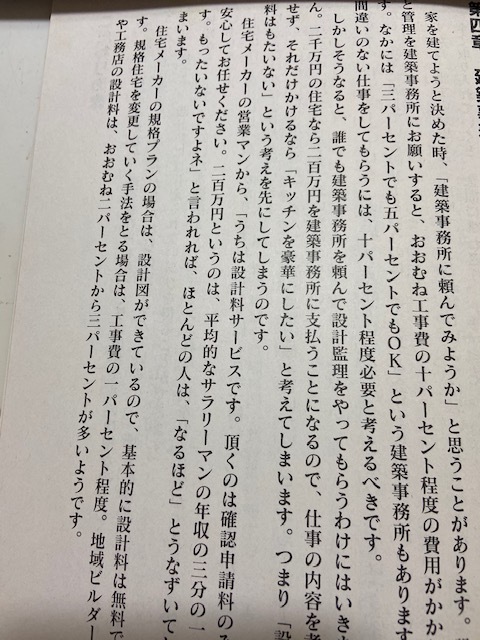 第四章　建築
家を建てようと決めた時、「建築事務所に頼んでみようか」と思うことがあります。
と管理を建築事務所にお願いすると、おおむね工事費の十パーセント程度の費用がかか
す。なかには「三パーセントでも五パーセントでもOK」という建築事務所もあります
間違いのない仕事をしてもらうには、十パーセント程度必要と考えるべきです。
しかしそうなると、誰でも建築事務所を頼んで設計監理をやってもらうわけにはいき
ん。二千万円の住宅なら二百万円を建築事務所に支払うことになるので、仕事の内容を考
せず、それだけかけるなら「キッチンを豪華にしたい」と考えてしまいます。つまり「設
料はもたいない」という考えを先にしてしまうのです。
住宅メーカーの営業マンから、「うちは設計料サービスです。頂くのは確認申請料のみ
安心してお任せください。二百万円というのは、平均的なサラリーマンの年収の三分の一
す。もったいないですよネ」と言われれば、ほとんどの人は、「なるほど」とうなずいて
まいます。
住宅メーカーの規格プランの場合は、設計図ができているので、基本的に設計料は無料で
す。規格住宅を変更していく手法をとる場合は、工事費の一パーセント程度。地域ビルダー
や工務店の設計料は、おおむね二パーセントから三パーセントが多いようです。